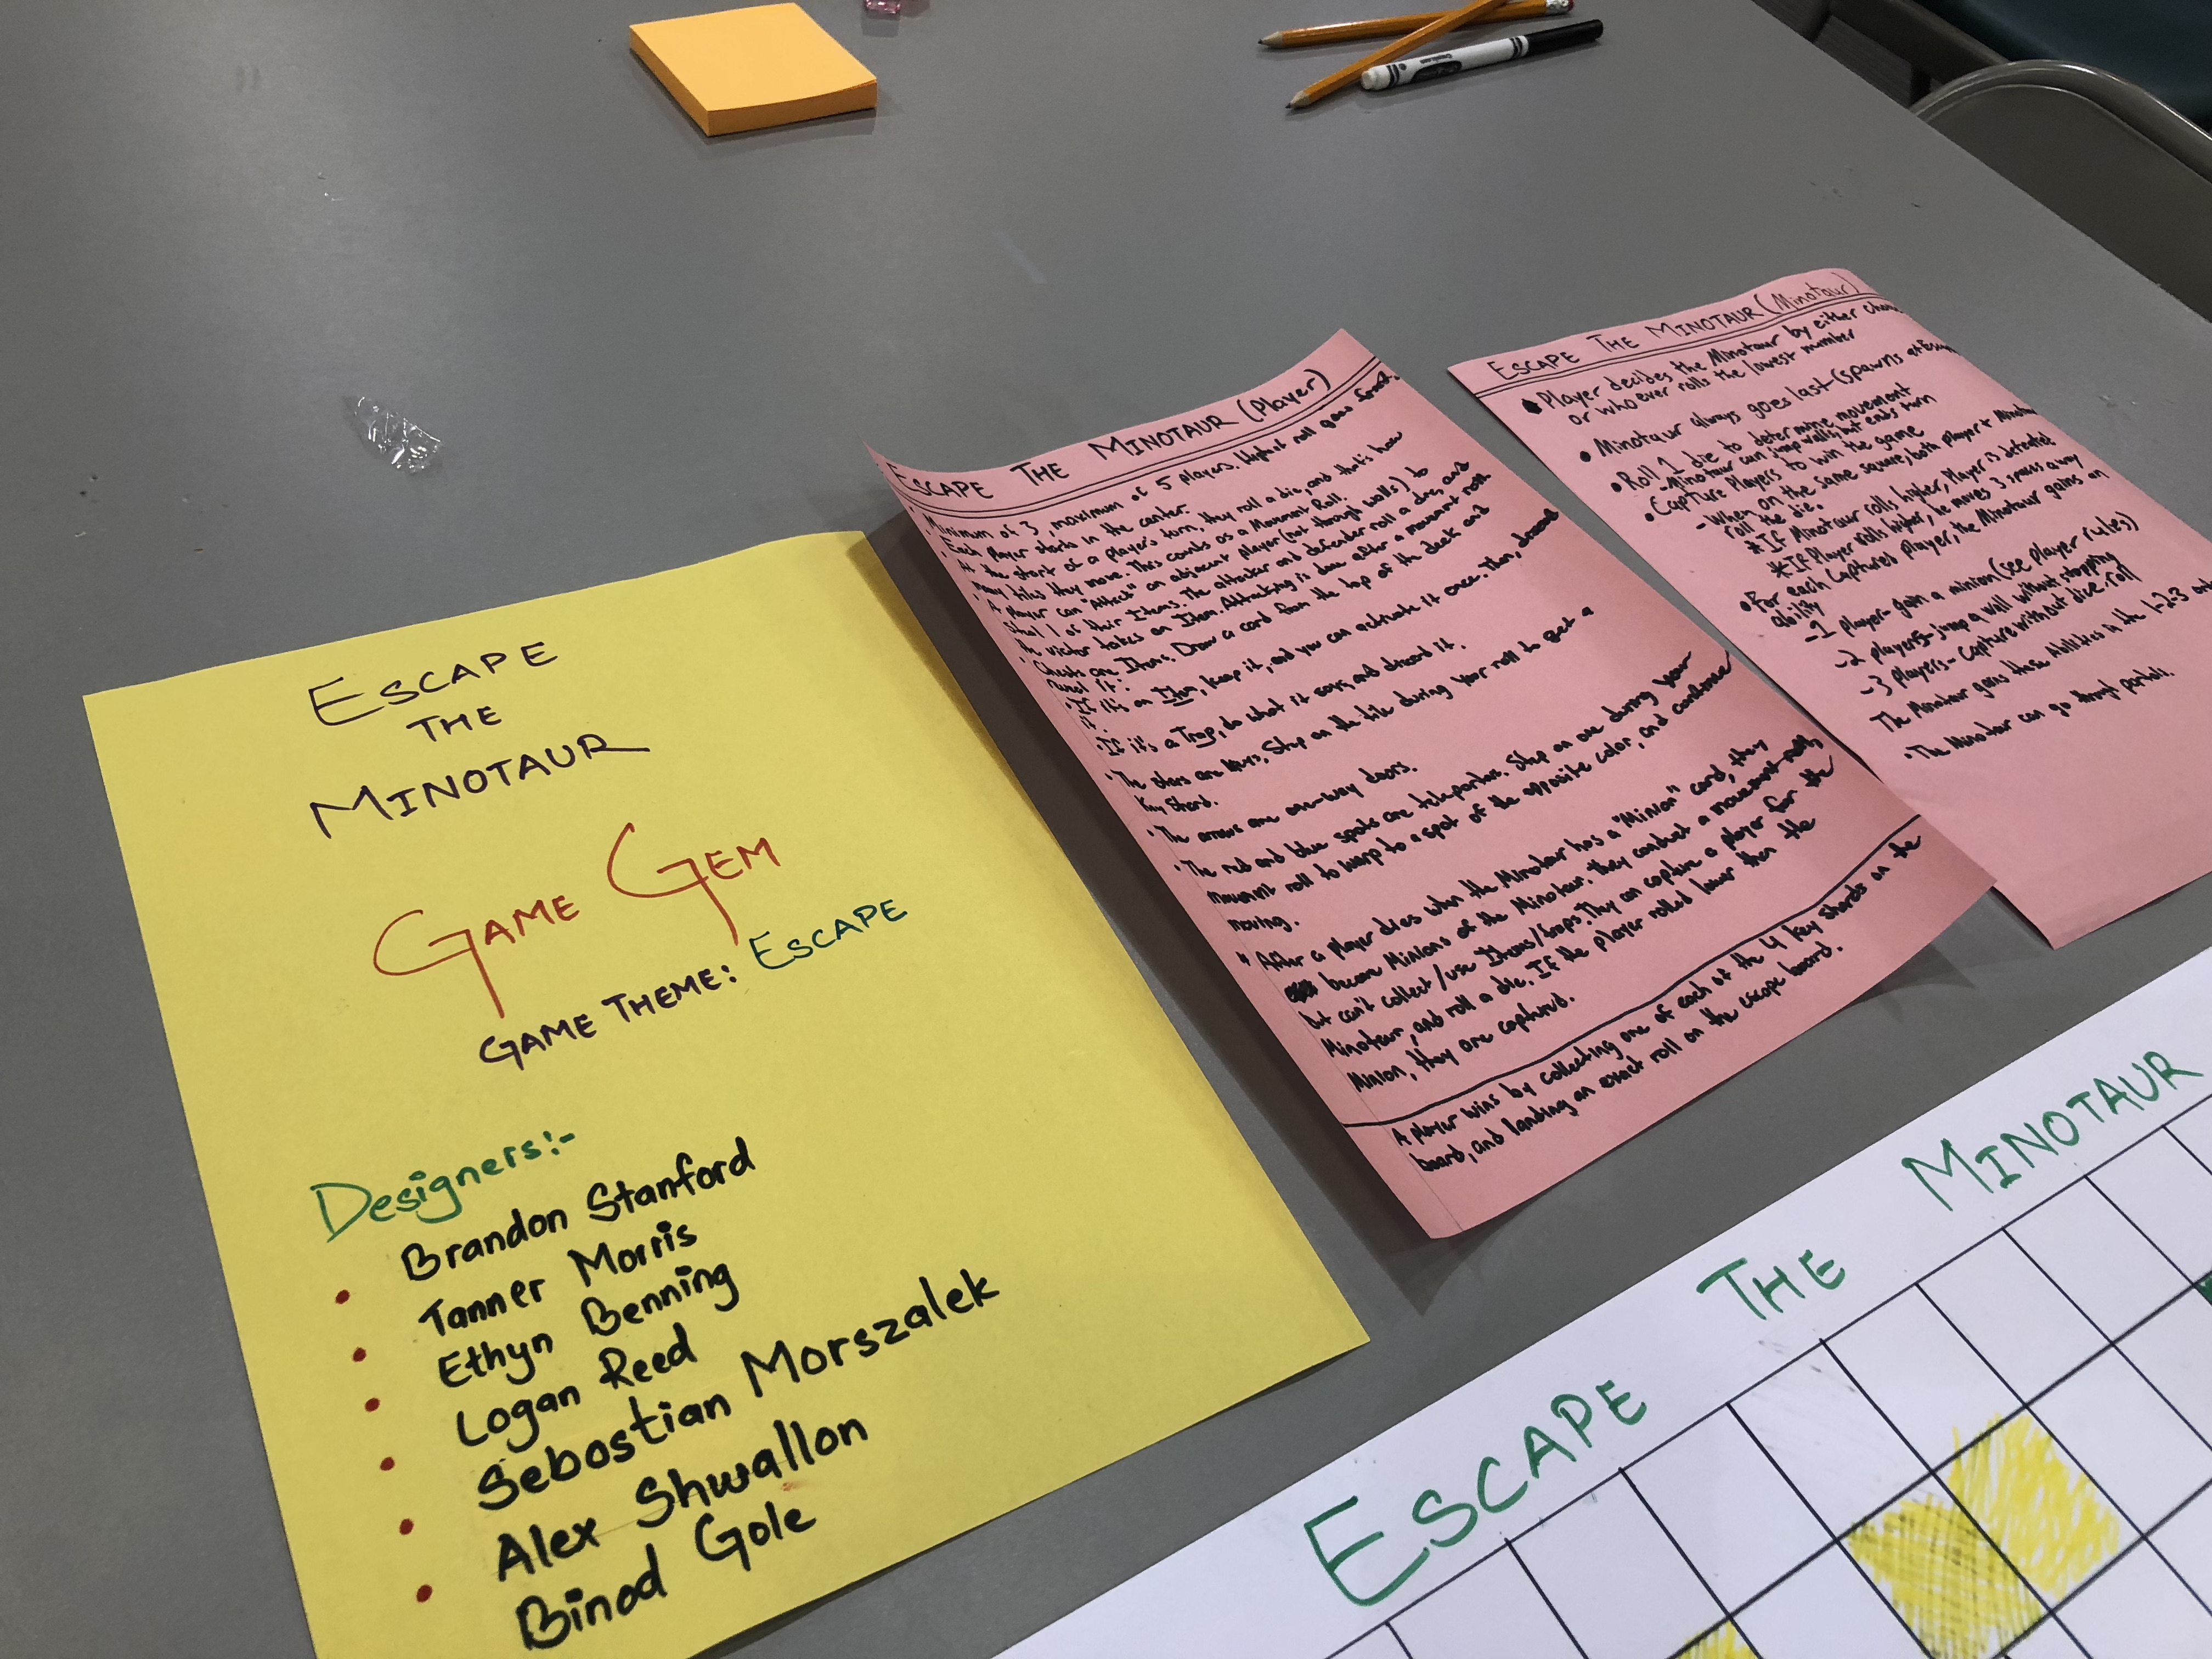 ESCAPE
THE
MINOTAUR
GAME GEM
GAME THEME: ESCAPE
Designers:-
• Brandon Stanford
• Tanner Morris
• Ethyn Benning
• Logan Reed
• Sebostian Morszalek
• Alex Shwallon
Binod Gole
ESCAPE THE MINOTAUR (Player)
• Minimum of 3, maximum of 5 players. Highest roll goes first.
• Each player starts in the center.
• At the start of a player's turn, they roll a die, and that's how
many tiles they move. This counts as a Movement Roll.
• A player can "Attack" an adjacent player (not through walls) to
steal 1 of their Items. The attacker and defender roll a die, and
the victor takes an Item. Attacking is done after a movement roll.
• Chests are Items. Draw a card from the top of the deck and
reveal it:
• If it's an Item, keep it, and you can activate it once. Then, discard
it.
• If it's a Trap, do what it says, and discard it.
• The stars are Keys. Stop on the tile during your roll to get a
Key Shard.
• The arrows are one-way doors.
• The red and blue spots are teleporters. Stop on one during your
movement roll to warp to a spot of the opposite color, and continue
moving.
• After a player dies when the Minotaur has a "Minion" card, they
become Minions of the Minotaur. they conduct a movement roll,
but can't collect/use Items/traps. They can capture a player for the
Minotaur, and roll a die. If the player rolled lower then the
Minion, they are captured.
A player wins by collecting one of each of the 4 key shards on the
board, and landing an exact roll on the escape board.
ESCAPE THE MINOTAUR (Minotaur)
• Player decides the Minotaur by either
or who ever rolls the lowest number
• Minotaur always goes last (spawns at
• Roll 1 die to determine movement
- Minotaur can jump walls, but ends turn
• Capture Players to win the game
- When on the same square, both player + Minotaur
roll the die.
* If Minotaur rolls higher, Player is defeated
* If Player rolls higher, he moves 3 spaces away
• For each Captured player, the Minotaur gains an
ability
- 1 player- gain a minion (see player rules)
- 2 players- jump a wall without stopping
- 3 players- Capture without dice roll
The Minotaur gains these Abilities in the 1-2-3
• The Minotaur can go through portals.
ESCAPE THE MINOTAUR